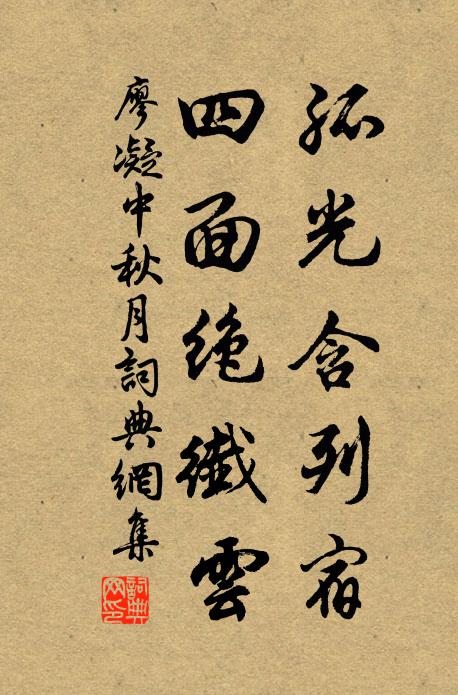 孤光含列宿
四面絶纖雲
廖凝中秋月詞典網集
詞典網印